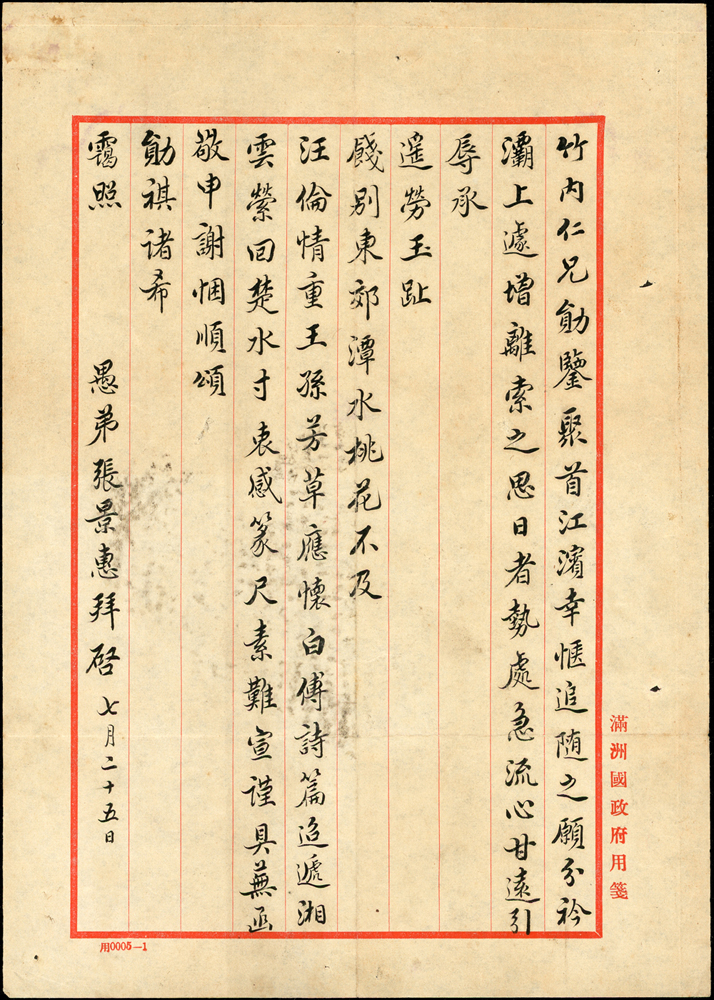 竹内仁兄勛鑒聚首江濱幸愜追随之願分衿
灞上遽增離索之思日者勢處急流心甘遠引
辱承
遥勞玉趾
餞别東郊潭水桃花不及
汪倫情重王孫芳草應懷白傅詩篇迢遞湘
雲縈回楚水寸衷感篆尺素難宣謹具蕪函
敬申謝悃順頌
勛祺诸希
靄照
愚弟張景惠拜啓 七月二十五日
滿洲國政府用箋
用0005-1